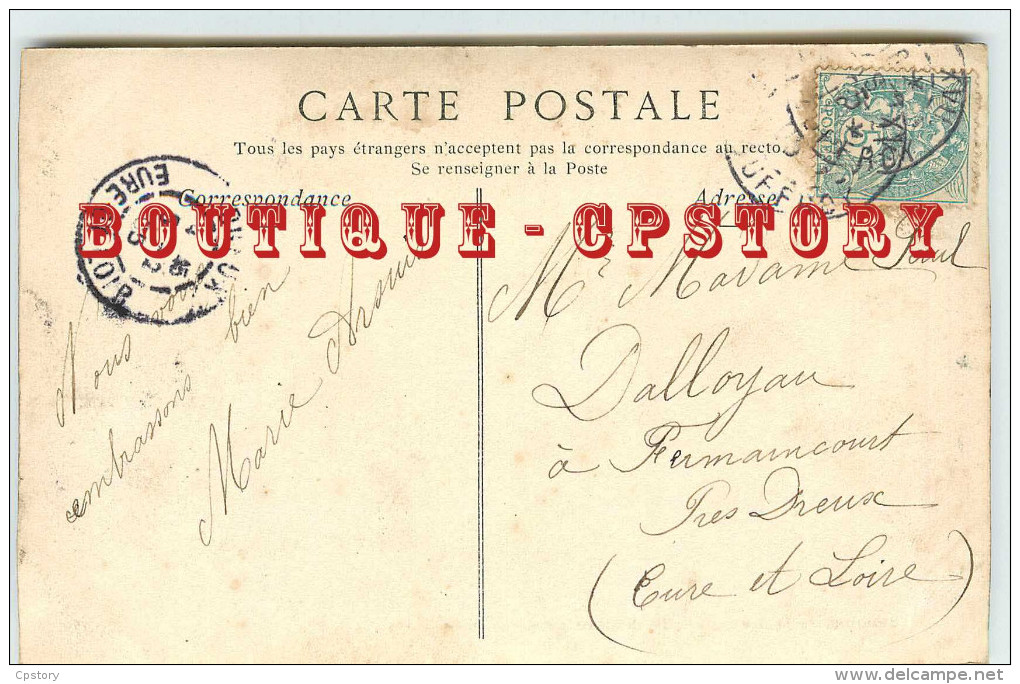 CARTE POSTALE
Tous les pays étrangers n'acceptent pas la correspondance au recto
Se renseigner à la Poste
Correspondance
Adresse
BOUTIQUE - CPSTORY
Nous vous
embrassons bien
Marie
Mr Madame Paul
Dalloyau
à Fermaincourt
Près Dreux
(Eure et Loire)
EURE
LOIR
Cpstory
delcampe.net